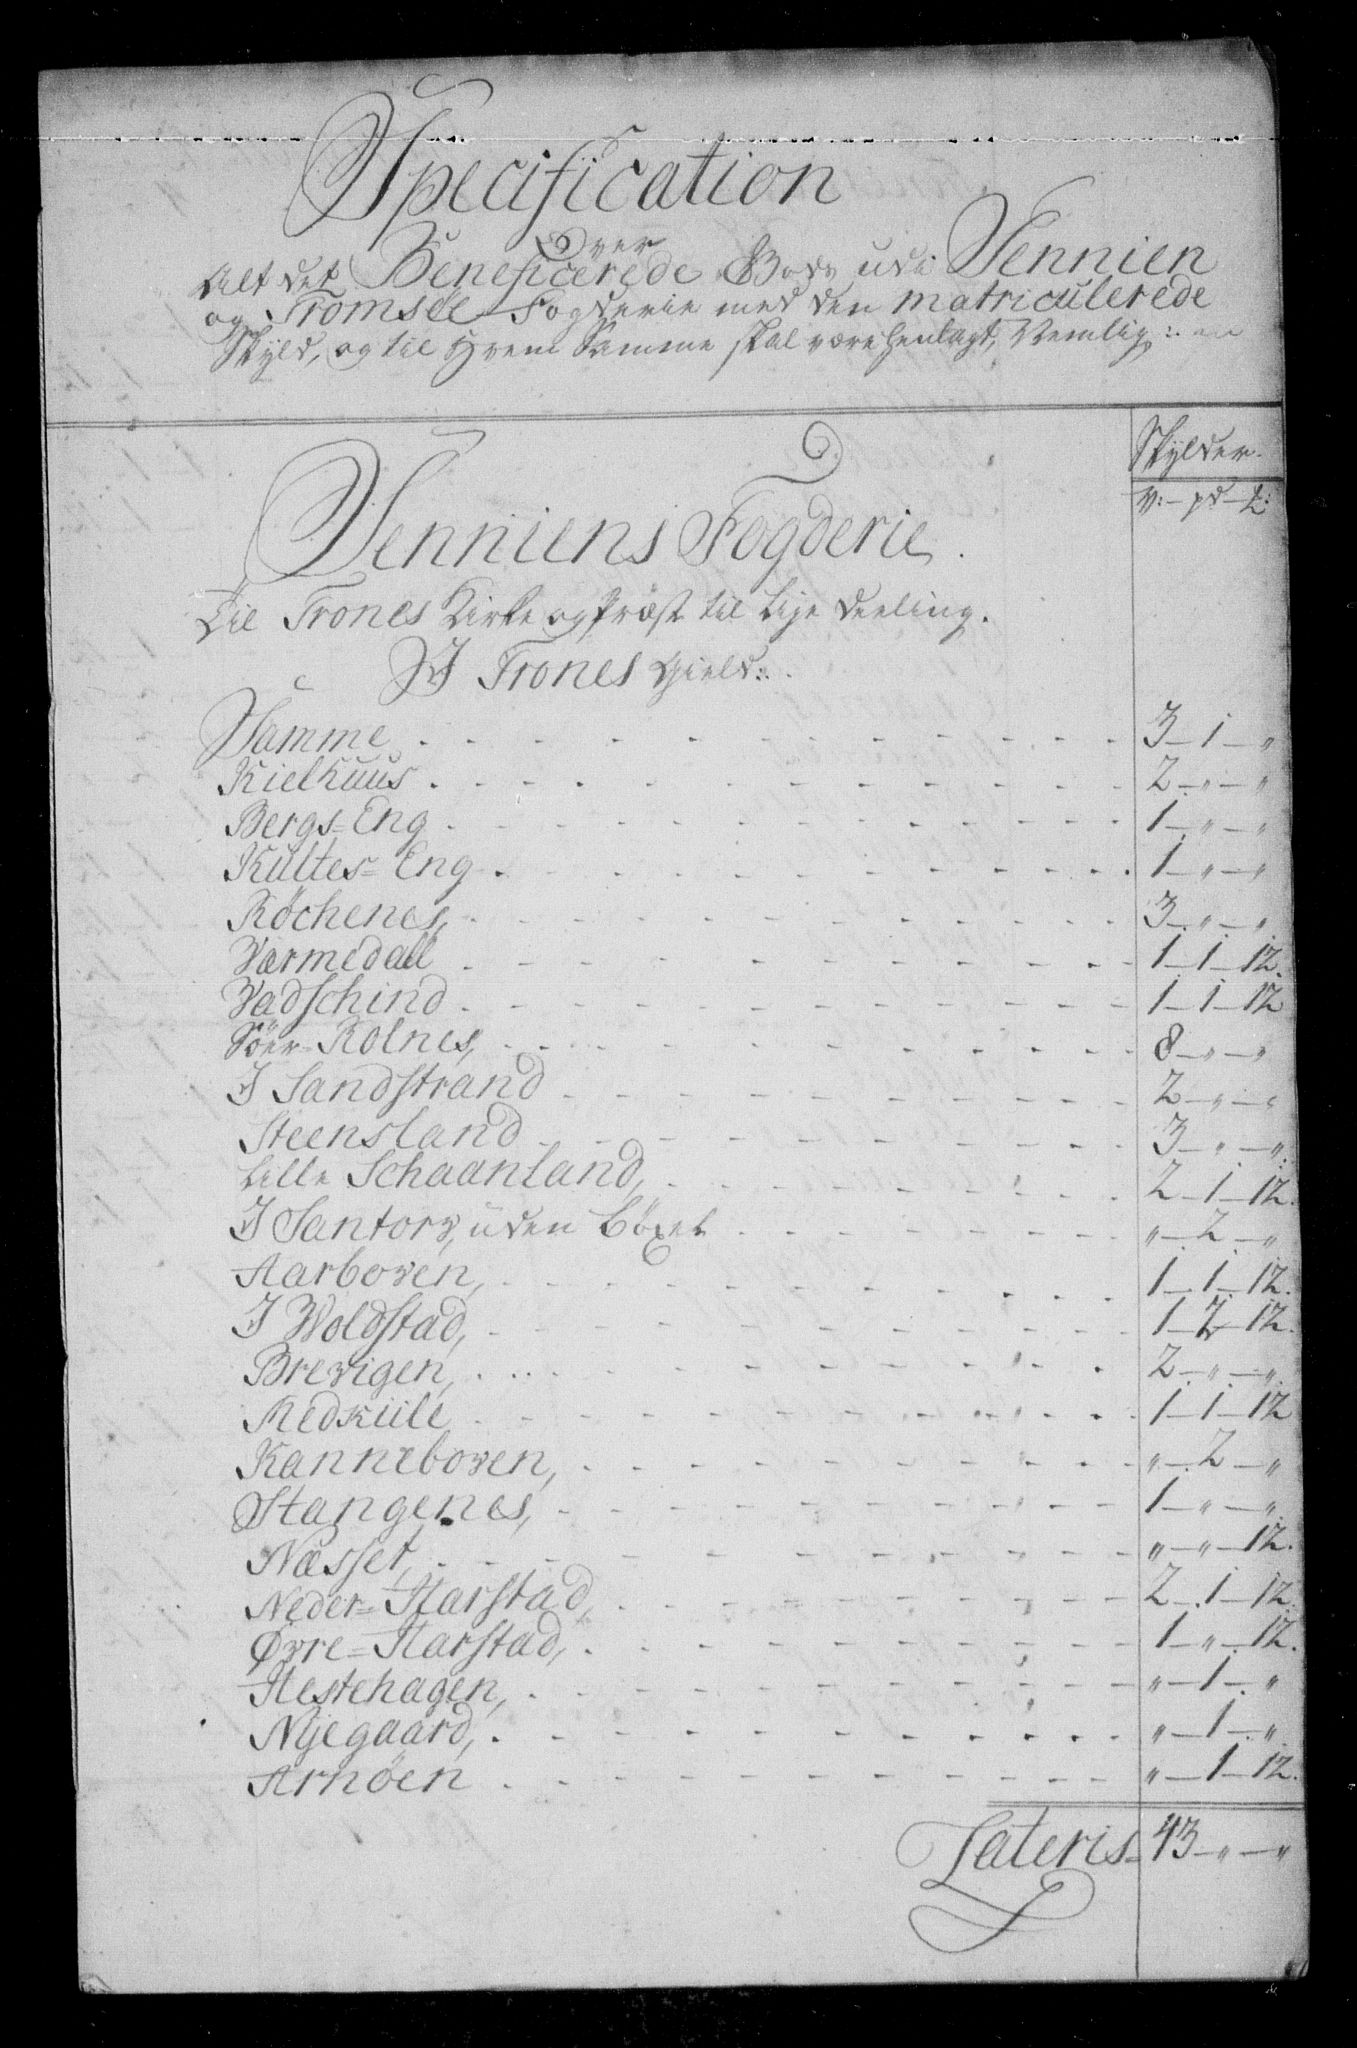 Specification
Over
Alt det Beneficerede Gods udi Sennien
og Tromsøe Fogderie med den matriculerede
Skyld, og til Hvem Samme skal være henlagt, Nemlig:
Skylder.
V:— pd— ℔:
Senniens Fogderie.
Til Trones Kirke og Præst til Lige deeling.
I Trones Gield:
Samme 3—1—"
Kielhuus 2—"—"
Bergs=Eng 1—"—"
Kultes=Eng 1—"—"
Røchenes, 3—"—"
Værmedall 1—1—12.
Vadschind 1—1—12
Söer=Rolnes, 8—"—"
I Sandstrand 2—"—"
Steensland 3—"—"
Lille Schaanland, 2—1—12.
I Santorv, uden Böxel "—2—"
Aarboven, 1—1—12.
I Woldstad, 1—2—12.
Brevigen, 2—"—"
Medkiile 1—1—12
Kanneboven, "—2—"
Stangenes, 1—"—"
Næsset, "—"—12.
Neder=Harstad, 2—1—12.
Øvre=Harstad, 1—"—12.
Hestehagen, "—1—"
Nyegaard, "—1—"
Arnöen "—1—12.
Lateris= 43—"—"